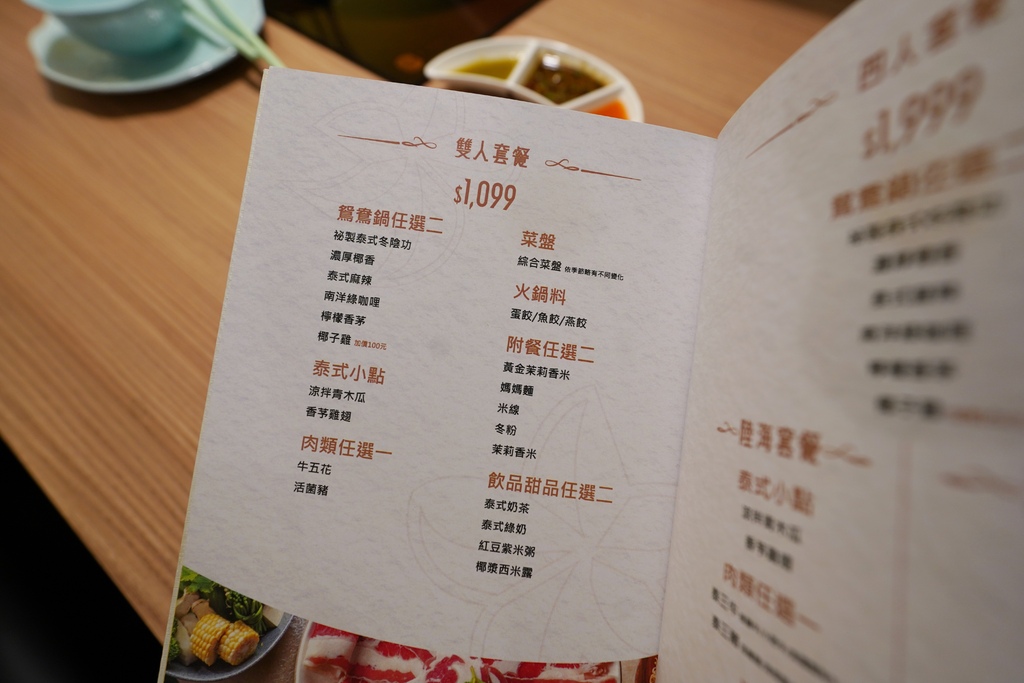 雙人套餐
$1,099
鴛鴦鍋任選二
祕製泰式冬陰功
濃厚椰香
泰式麻辣
南洋綠咖哩
檸檬香茅
椰子雞 加價100元
泰式小點
涼拌青木瓜
香茅雞翅
肉類任選一
牛五花
活菌豬
菜盤
綜合菜盤 依季節略有不同變化
火鍋料
蛋餃/魚餃/燕餃
附餐任選二
黃金茉莉香米
媽媽麵
米線
冬粉
茉莉香米
飲品甜品任選二
泰式奶茶
泰式綠奶
紅豆紫米粥
椰漿西米露
四人套餐
$1,999
鴛鴦鍋任選二
陸海套餐
泰式小點
涼拌青木瓜
香茅雞翅
肉類任選一